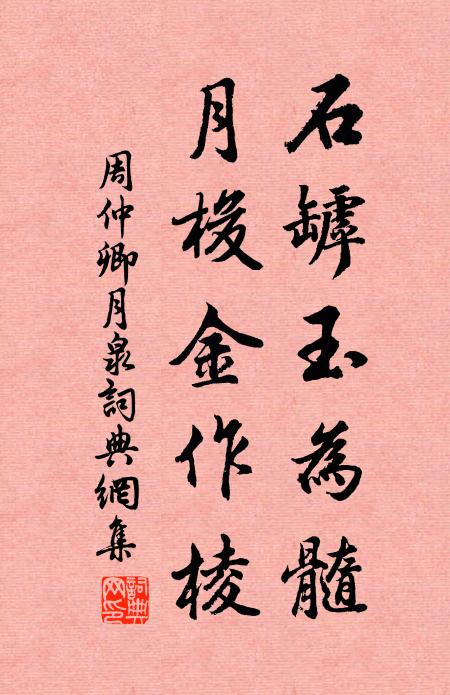 石罅玉為髓
月梭金作棱
周仲卿月泉詞典網集
詞典網印